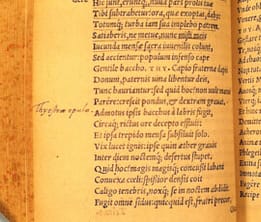 Hic sunt, eruntq;, nulla pars prolis tuæ
Tibi subtrahetur: ora, quæ exoptas, dabo:
Totumq; turba iam sua implebo patrem.
Satiaberis, ne metue, nunc misti meis
Iucunda mensæ sacra iuuenilis colunt,
Sed accientur: poculum infuso cape
Gentile baccho. THY. Capio fraternæ dapis
Donum, paternis uina libentur deis,
Tunc hauriantur: sed quid hoc? nolunt manus
Parere: crescit pondus, & dextram grauat,
Thyestea epulæ
Admotus ipsis bacchus à labris fugit,
Circaq; rictus ore decepto effluit:
Et ipsa trepido mensa subsiluit solo.
Vix lucet ignis: ipse quin æther grauis
Inter diem noctemq; desertus stupet.
Quid hoc? magis magisq; concussi labant
Conuexa cœli: spissior densis coit
Caligo tenebris, noxq; se in noctem abdidit.
Fugit omne sidus: quicquid est, fratri precor,